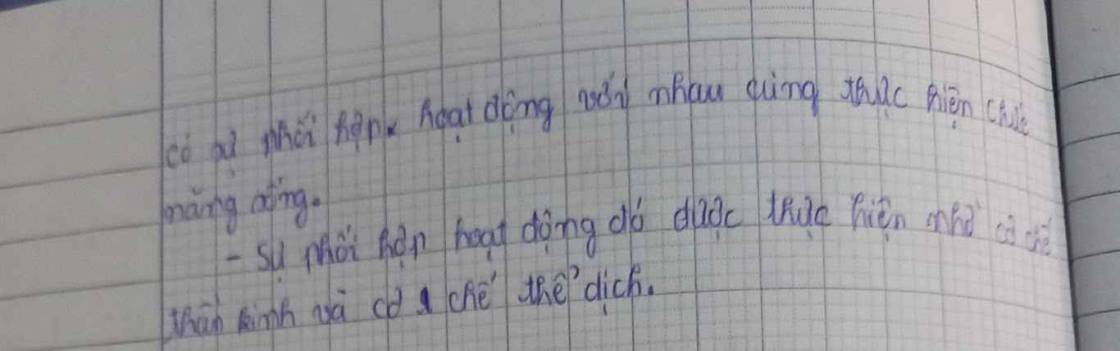 có sự phối hợp hoạt động với nhau cùng thực hiện chức
năng sống.
- Sự phối hợp hoạt động đó được thực hiện nhờ cơ chế
thần kinh và cơ chế thể dịch.